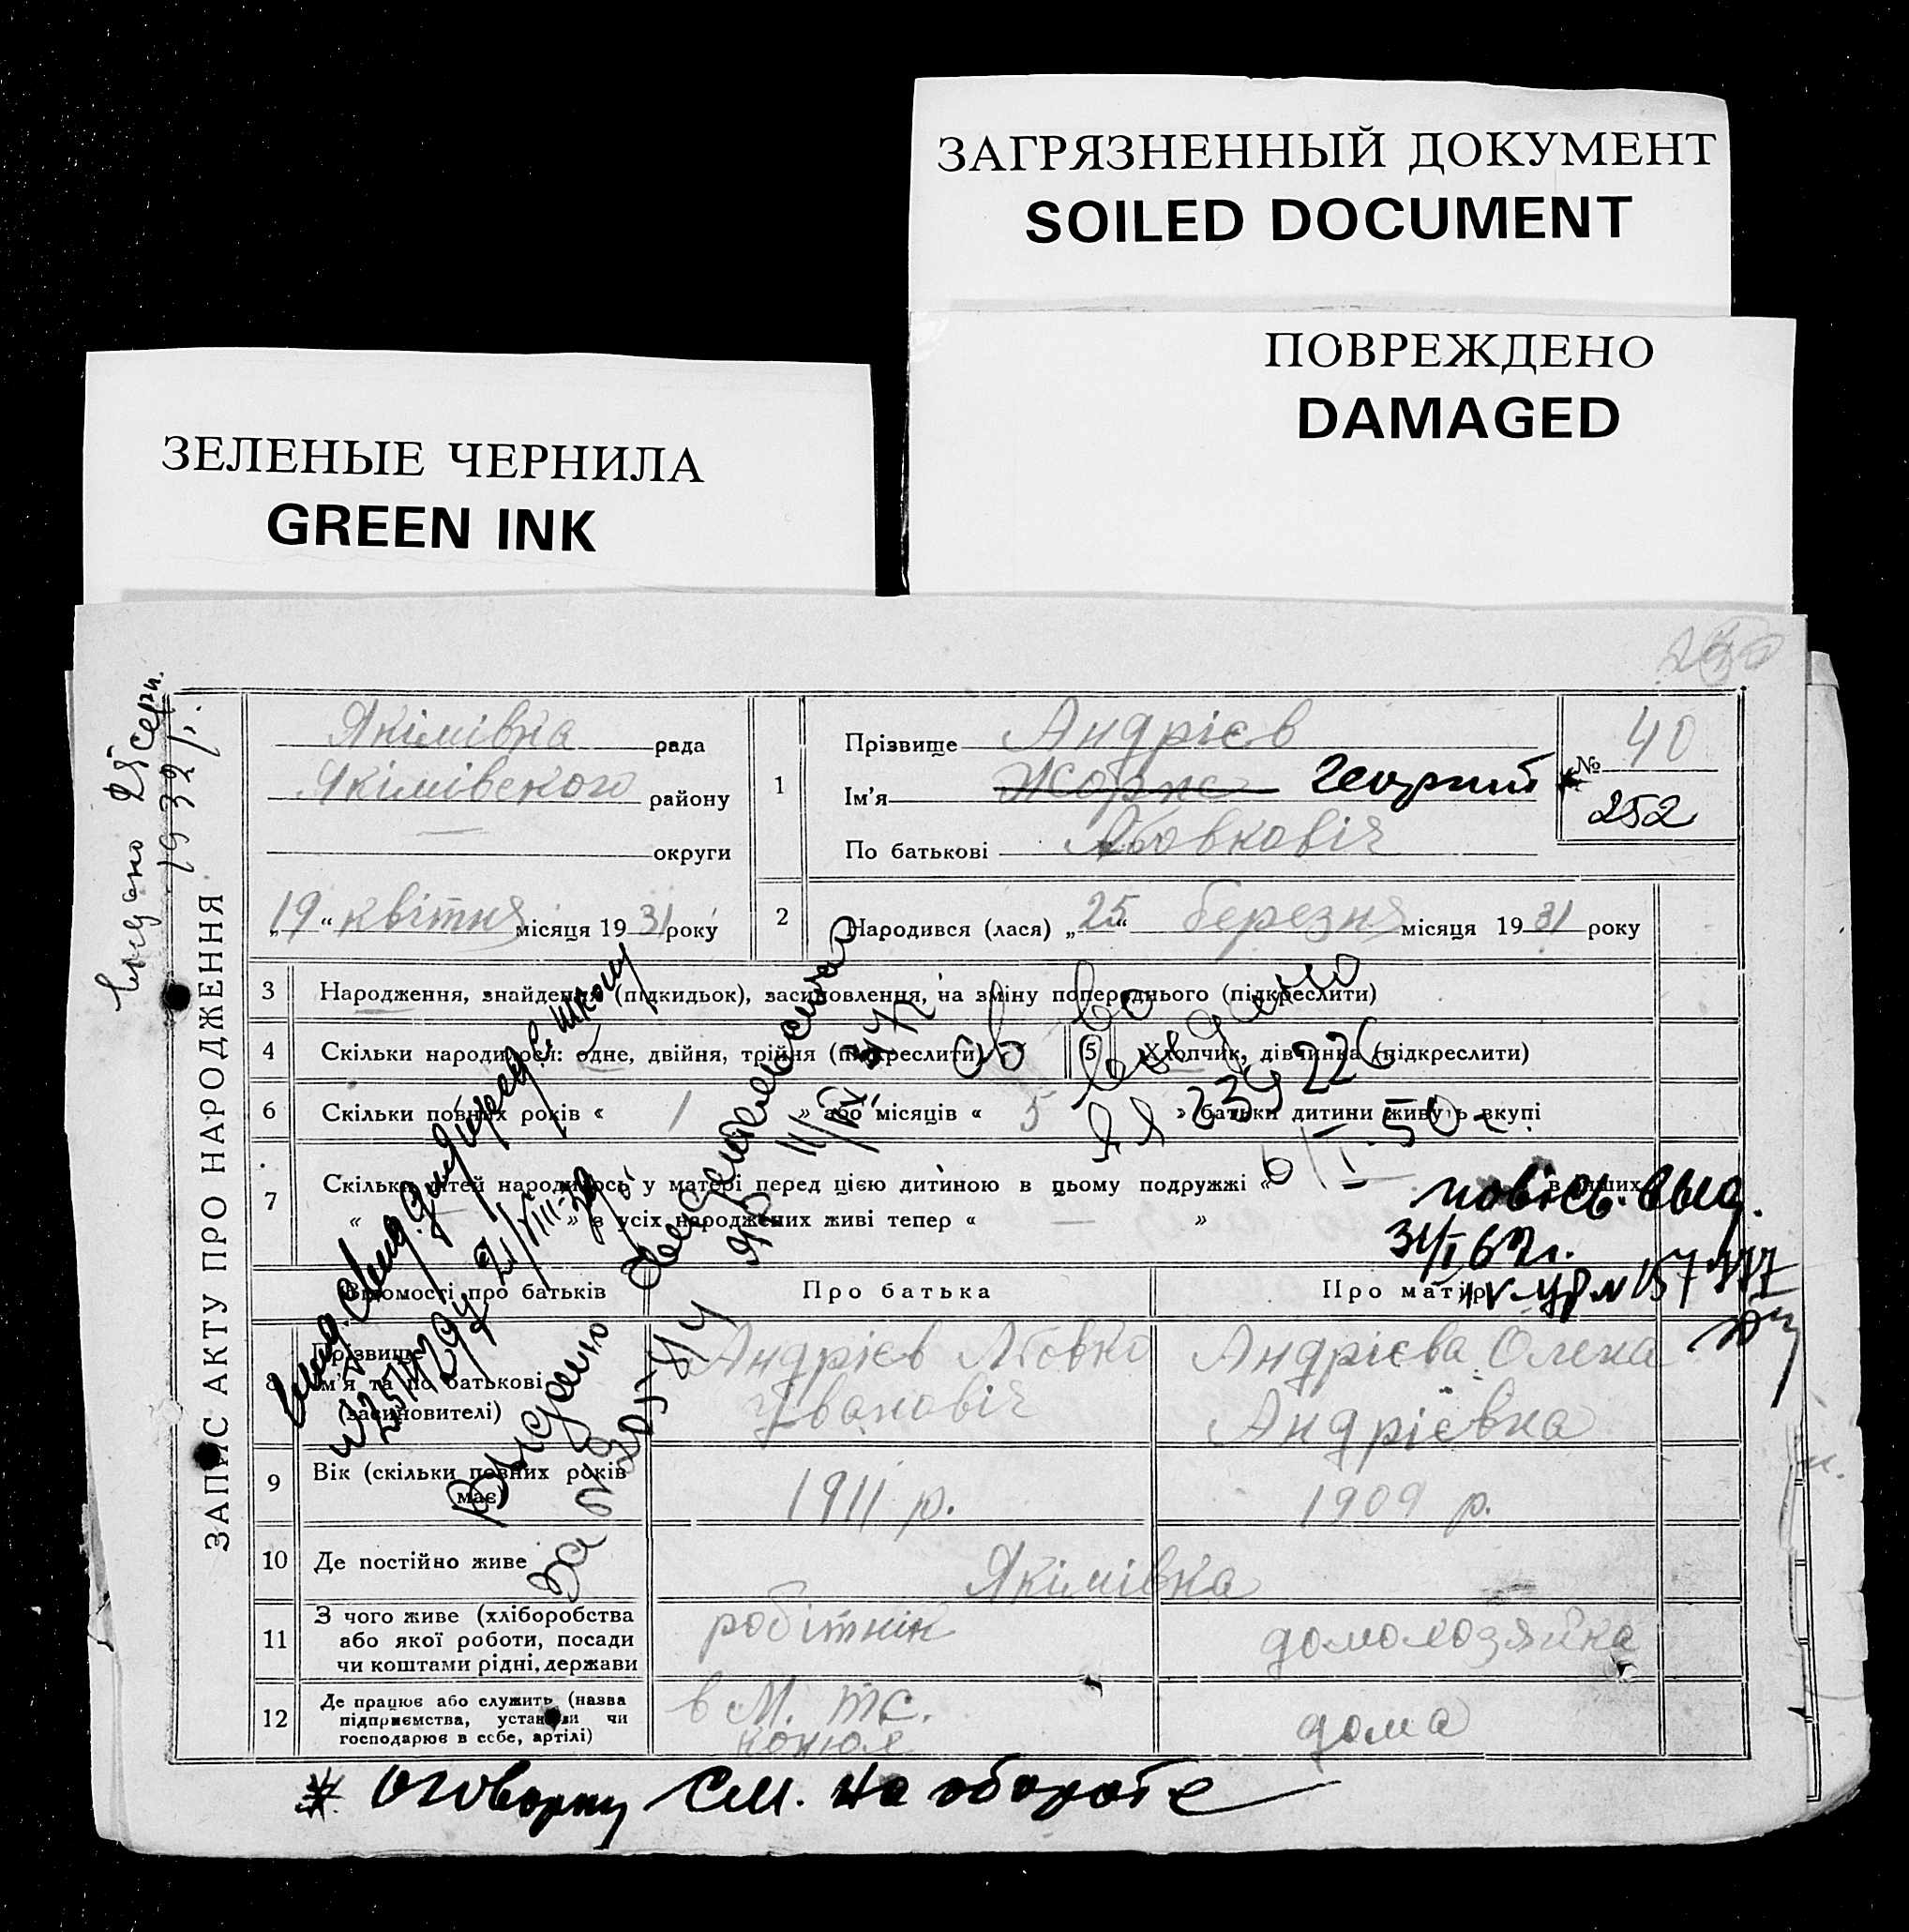 ЗАГРЯЗНЕННЫЙ ДОКУМЕНТ
SOILED DOCUMENT
ПОВРЕЖДЕНО
DAMAGED
ЗЕЛЕНЫЕ ЧЕРНИЛА
GREEN INK
видано 25 серп.
1932 р.
ЗАПИС АКТУ ПРО НАРОДЖЕННЯ
Якімівка рада
Якімівского району
— округи
„19“ квітня місяця 1931 року
1
Прізвище Андрієв
Ім'я Жорж Георгий *
По батькові Лбовковіч
№ 40
252
2 Народився (лася) „25“ березня місяця 1931 року
3 Народження, знайдення (підкидьок), засиновлення, на зміну попереднього (підкреслити)
4 Скільки народилося: одне, двійня, трійня (підкреслити)
5 Хлопчик, дівчинка (підкреслити)
6 Скільки повних років « 1 » або місяців « 5 » батьки дитини живуть вкупі
7 Скільки дітей народилось у матері перед цією дитиною в цьому подружжі « — в інших
« — » з усіх народжених живі тепер « — »
св во
выдано
234226
6/I-50
повтсв. выд.
31/I 67г.
IV-УР № 157777
Відомості про батьків
Про батька
Про матір
8 Прізвище
Ім'я та по батькові
(засиновителі)
Андрієв Лбовко
Івановіч
Андрієва Олена
Андрієвна
9 Вік (скільки повних років має)
1911 р.
1909 р.
10 Де постійно живе
Якімівка
11 З чого живе (хліборобства
або якої роботи, посади
чи коштами рідні, держави
робітнік
домохозяйка
12 Де працює або служить (назва
підприємства, установи чи
господарює в себе, артілі)
в М. тс.
конюх
дома
Выдано
за №
* Оговорку См. на обороте